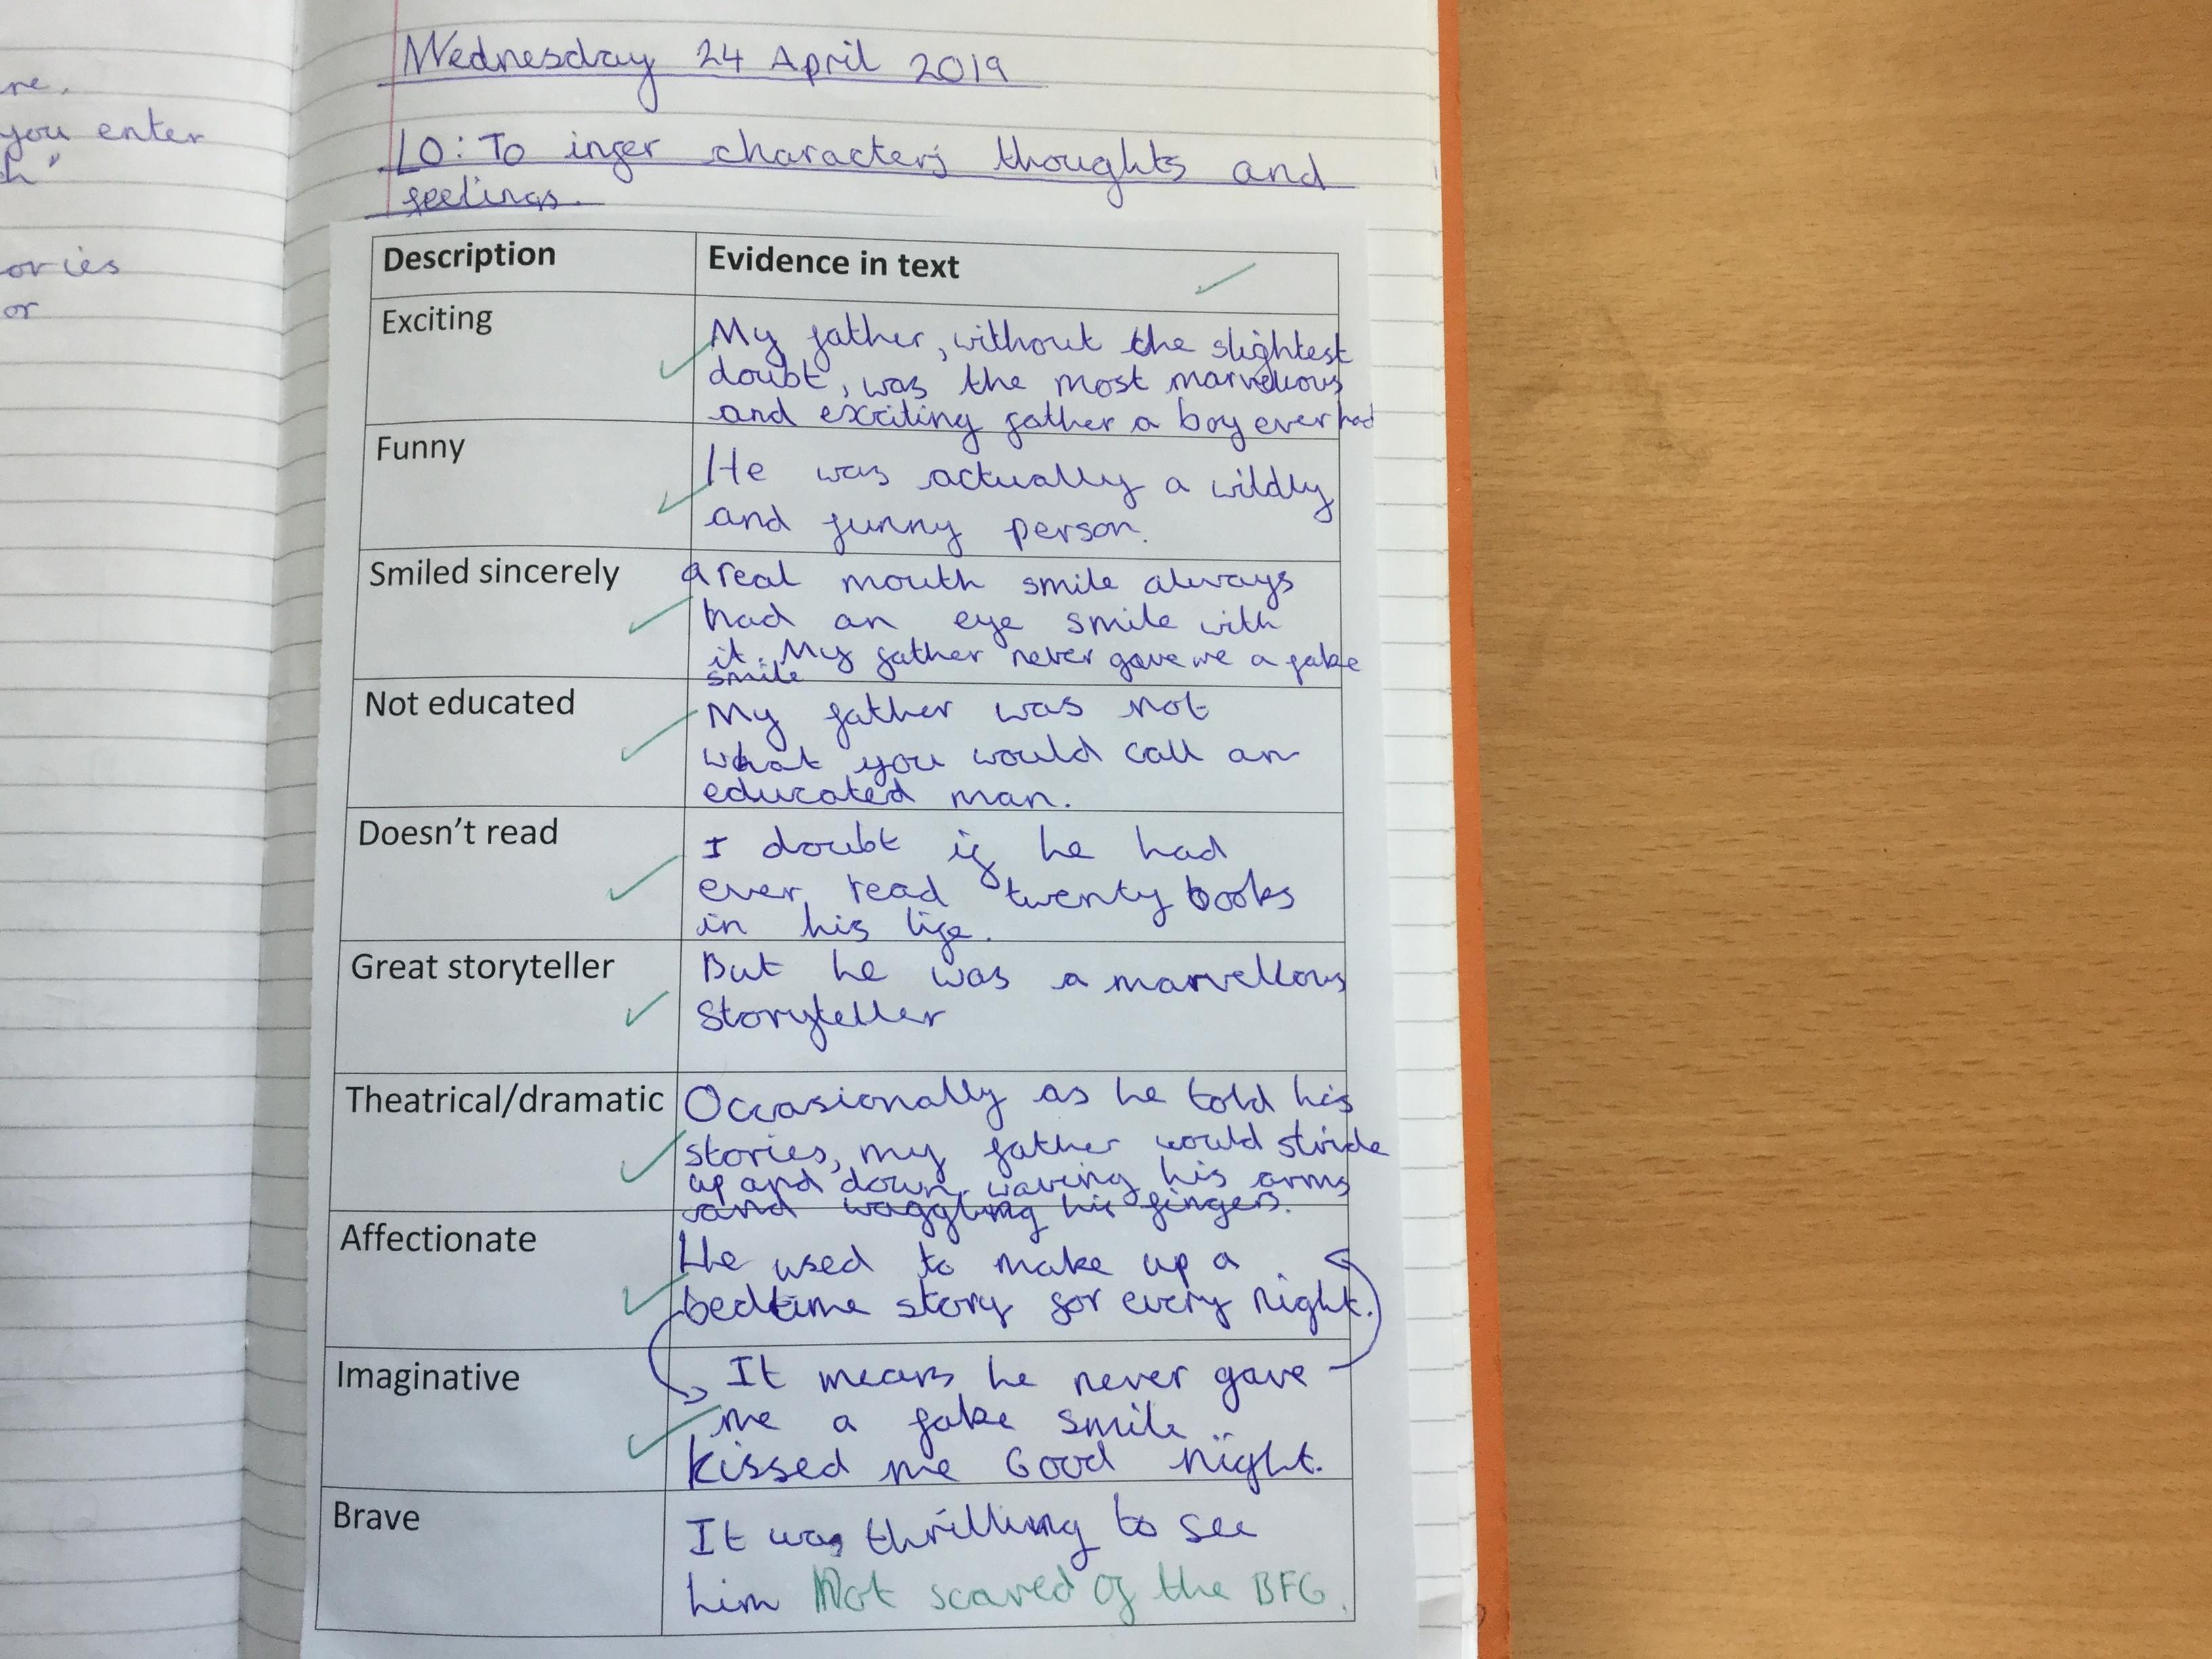 re.
you enter
h"
ories
or
Wednesday 24 April 2019
LO: To infer characters thoughts and
feelings.
Description
Evidence in text
Exciting
My father, without the slightest
doubt, was the most marvellous
and exciting father a boy ever had
Funny
He was actually a wildly
and funny person.
Smiled sincerely
a real mouth smile always
had an eye smile with
it. My father never gave me a fake
smile
Not educated
My father was not
what you would call an
educated man.
Doesn't read
I doubt if he had
ever read twenty books
in his life.
Great storyteller
But he was a marvellous
storyteller
Theatrical/dramatic
Occasionally as he told his
stories, my father would stride
up and down waving his arms
and waggling his fingers.
Affectionate
He used to make up a
bedtime story for every night.
Imaginative
It means he never gave
me a fake smile
kissed me Good night.
Brave
It was thrilling to see
him Not scared of the BFG.